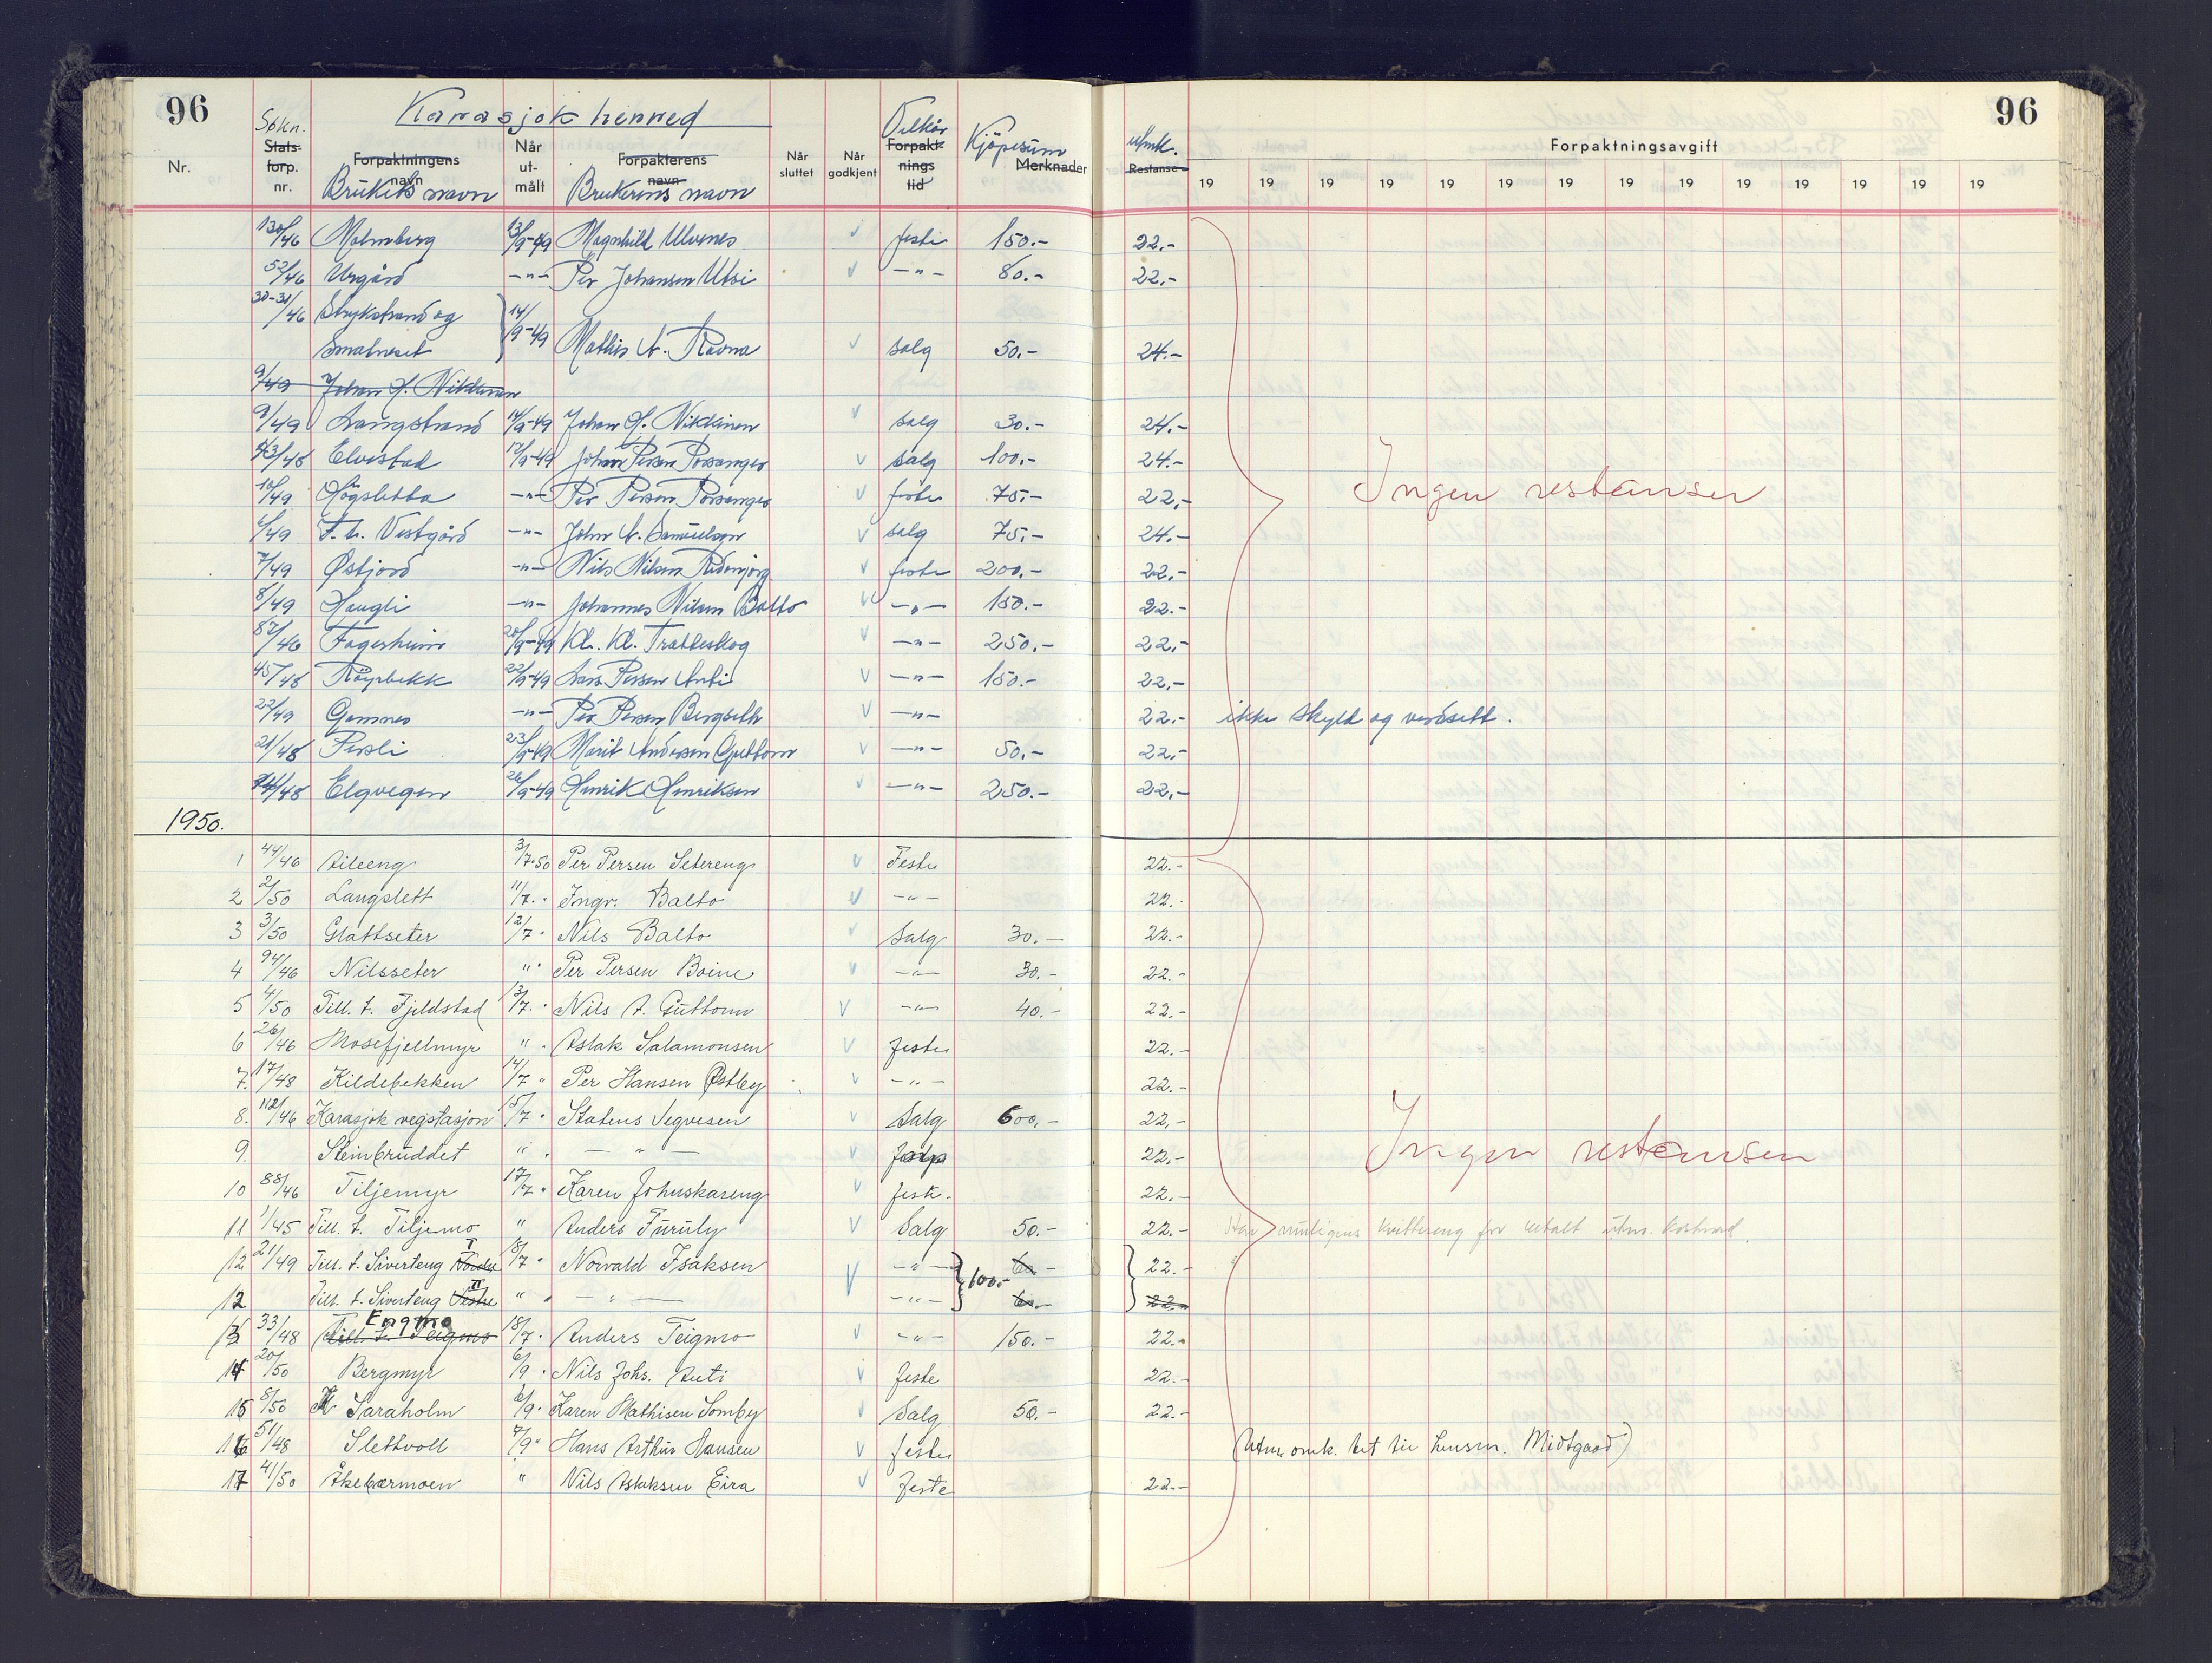 96 Karasjok herred 96
Søkn. Vilkår Kjøpesum utmk.
Nr. Stats- forp. nr. Forpaktningens navn Når ut- målt Forpakterens navn Når sluttet Når godkjent Forpakt- nings tid Merknader Restanse Forpaktningsavgift
Brukets navn Brukerens navn
19 19 19 19 19 19 19 19 19 19 19 19 19 19
130/46 Malmberg 13/9-49 Magnhild Ulvenes feste 150.- 22.-
52/46 Urgård -"- Per Johansen Utsi -"- 80.- 22.-
30-31/46 Strykstrand og 14/9-49
Smalneset Mathis A. Ravna salg 50.- 24.-
9/49 Johan H. Nikkinen
9/49 Langstrand 14/9-49 Johan H. Nikkinen salg 30.- 24.-
43/48 Elvestad 17/9-49 Johan Persen Porsanger salg 100.- 24.-
10/49 Høgsletta -"- Per Persen Porsanger feste 75.- 22.- Ingen restanser
6/49 T. t. Vestgård -"- John A. Samuelsen salg 75.- 24.-
7/49 Østjord -"- Nils Nilsen feste 200.- 22.-
8/49 Haugli -"- Johannes Nilsen Balto -"- 150.- 22.-
87/46 Fagerheim 20/9-49 Kl. Kl. Tratteskog -"- 250.- 22.-
45/48 Røyrbekk 22/9-49 Lars Persen Anti -"- 150.- 22.-
22/49 Gamnes -"- Per Persen Bergseth -"- 22.- ikke skyld og verdsett.
21/48 Persli 23/9-49 Marit Andersen Guttorm -"- 50.- 22.-
44/48 Elgvegen 26/9-49 Henrik Henriksen -"- 250.- 22.-
1950.
1 44/46 Aileeng 3/7-50 Per Persen Setereng Feste 22.-
2 2/50 Langslett 11/7. Ingv. Balto -"- 22.-
3 3/50 Glattseter 12/7. Nils Balto Salg 30.- 22.-
4 94/46 Nilsseter " Per Persen Boine -"- 30.- 22.-
5 4/50 Till. t. Fjeldstad 13/7. Nils A. Guttorm -"- 40.- 22.-
6 26/46 Mosefjellmyr " Aslak Salamonsen Feste 22.-
7. 17/48 Kildebekken 14/7 Per Hansen Østby -"- 22.-
8. 112/46 Karasjok vegstasjon 15/7. Statens Vegvesen Salg 600.- 22.-
9. Steinbruddet " - " - 22.- Ingen restansen
10 88/46 Tiljemyr 17/7. Karen Johnskareng feste. 22.-
11 1/45 Till. t. Tiljemo " Anders Furuly Salg 50.- 22.- Har muligens kvittering for betalt utm. kostnad.
12 21/49 Till. t. Siverteng Nordre I 18/7. Norvald Isaksen -"- 100.- 60.- 22.-
12 Till. t. Siverteng Vestre II " - " - -"- 60.- 22.-
13 33/48 Till. t. Teigmo Engmo 18/7. Anders Teigmo -"- 150.- 22.-
14 20/50 Bergmyr 6/9. Nils Johs. Anti Feste 22.-
15 8/50 Saraholm 6/9. Karen Mathisen Somby Salg 50.- 22.-
16 51/48 Slettvoll 7/9 Hans Arthur Hansen feste (Utm. omk. bet til lensm. Midtgaard)
17 41/50 Åkebærmoen " Nils Aslaksen Eira Feste 22.-